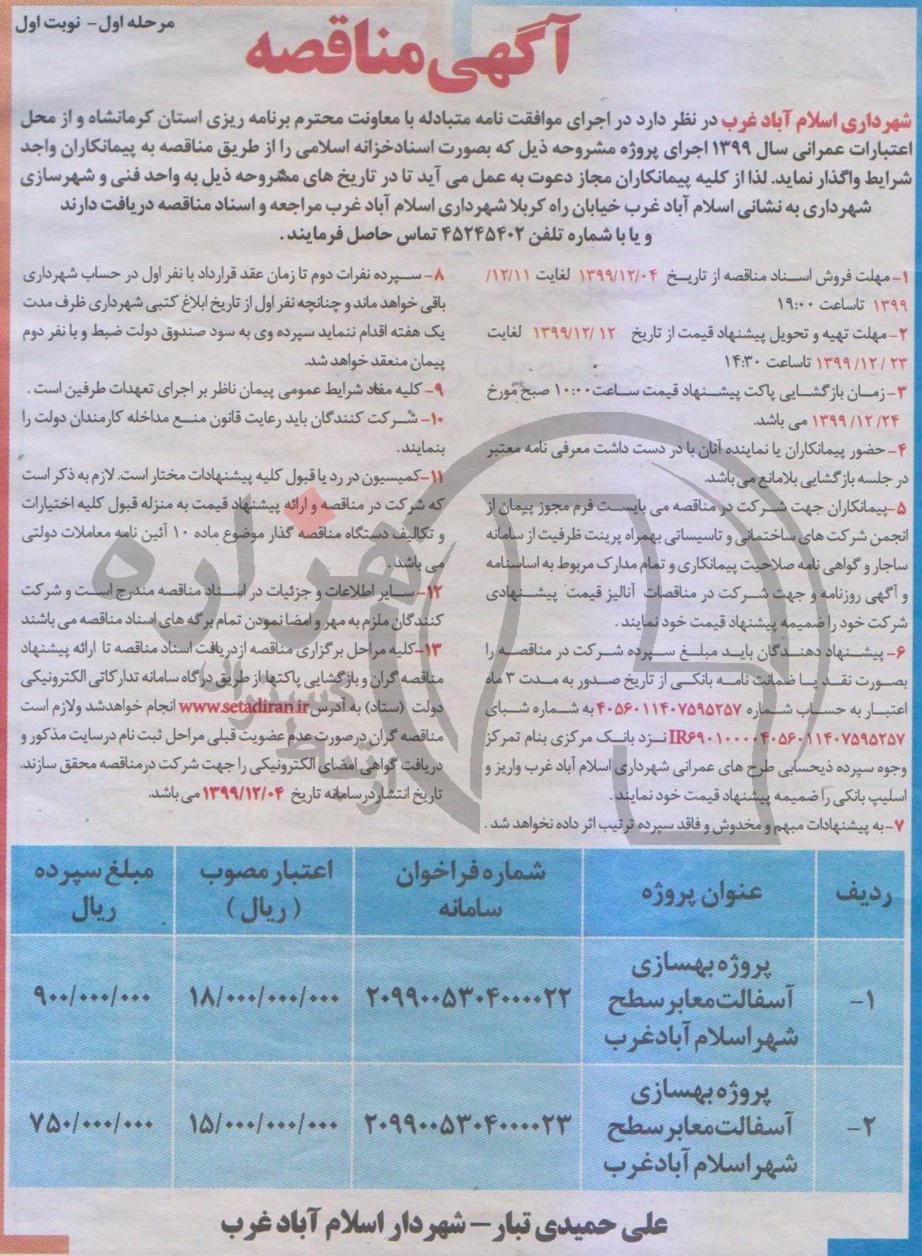 مرحله اول- نوبت اول
آگهی مناقصه
شهرداری اسلام آباد غرب در نظر دارد در اجرای موافقت نامه متبادله با معاونت محترم برنامه ریزی استان کرمانشاه و از محل
اعتبارات عمرانی سال ۱۳۹۹ اجرای پروژه مشروحه ذیل که بصورت اسنادخزانه اسلامی را از طریق مناقصه به پیمانکاران واجد
شرایط واگذار نماید. لذا از کلیه پیمانکاران مجاز دعوت به عمل می آید تا در تاریخ های مشروحه ذیل به واحد فنی و شهرسازی
شهرداری به نشانی اسلام آباد غرب خیابان راه کربلا شهرداری اسلام آباد غرب مراجعه و اسناد مناقصه دریافت دارند
و یا با شماره تلفن ۴۵۲۴۵۴۰۲ تماس حاصل فرمایند.
۱- مهلت فروش اسناد مناقصه از تاریخ ۱۳۹۹/۱۲/۰۴ لغایت ۱۲/۱۱/
۱۳۹۹ تاساعت ۱۹:۰۰
۲- مهلت تهیه و تحویل پیشنهاد قیمت از تاریخ ۱۳۹۹/۱۲/۱۲ لغایت
۱۳۹۹/۱۲/۲۳ تاساعت ۱۴:۳۰
۳- زمان بازگشایی پاکت پیشنهاد قیمت ساعت ۱۰:۰۰ صبح مورخ
۱۳۹۹/۱۲/۲۴ می باشد.
۴- حضور پیمانکاران یا نماینده آنان با در دست داشت معرفی نامه معتبر
در جلسه بازگشایی بلامانع می باشد.
۵- پیمانکاران جهت شرکت در مناقصه می بایست فرم مجوز پیمان از
انجمن شرکت های ساختمانی و تاسیساتی بهمراه پرینت ظرفیت از سامانه
ساجار و گواهی نامه صلاحیت پیمانکاری و تمام مدارک مربوط به اساسنامه
و آگهی روزنامه و جهت شرکت در مناقصات آنالیز قیمت پیشنهادی
شرکت خود را ضمیمه پیشنهاد قیمت خود نمایند.
۶- پیشنهاد دهندگان باید مبلغ سپرده شرکت در مناقصه را
بصورت نقد یا ضمانت نامه بانکی از تاریخ صدور به مدت ۳ ماه
اعتبار به حساب شماره ۴۰۵۶۰۱۱۴۰۷۵۹۵۲۵۷ به شماره شبای
IR۶۹۰۱۰۰۰۰۴۰۵۶۰۱۱۴۰۷۵۹۵۲۵۷ نزد بانک مرکزی بنام تمرکز
وجوه سپرده ذیحسابی طرح های عمرانی شهرداری اسلام آباد غرب واریز و
اسلیپ بانکی را ضمیمه پیشنهاد قیمت خود نمایند.
۷- به پیشنهادات مبهم و مخدوش و فاقد سپرده ترتیب اثر داده نخواهد شد.
۸- سپرده نفرات دوم تا زمان عقد قرارداد با نفر اول در حساب شهرداری
باقی خواهد ماند و چنانچه نفر اول از تاریخ ابلاغ کتبی شهرداری ظرف مدت
یک هفته اقدام ننماید سپرده وی به سود صندوق دولت ضبط و با نفر دوم
پیمان منعقد خواهد شد.
۹- کلیه مفاد شرایط عمومی پیمان ناظر بر اجرای تعهدات طرفین است.
۱۰- شرکت کنندگان باید رعایت قانون منع مداخله کارمندان دولت را
بنمایند.
۱۱- کمیسیون در رد یا قبول کلیه پیشنهادات مختار است. لازم به ذکر است
که شرکت در مناقصه و ارائه پیشنهاد قیمت به منزله قبول کلیه اختیارات
و تکالیف دستگاه مناقصه گذار موضوع ماده ۱۰ آئین نامه معاملات دولتی
می باشد.
۱۲- سایر اطلاعات و جزئیات در اسناد مناقصه مندرج است و شرکت
کنندگان ملزم به مهر و امضا نمودن تمام برگه های اسناد مناقصه می باشند
۱۳- کلیه مراحل برگزاری مناقصه ازدریافت اسناد مناقصه تا ارائه پیشنهاد
مناقصه گران و بازگشایی پاکتها از طریق درگاه سامانه تدارکاتی الکترونیکی
دولت (ستاد) به آدرس www.setadiran.ir انجام خواهدشد ولازم است
مناقصه گران درصورت عدم عضویت قبلی مراحل ثبت نام درسایت مذکور و
دریافت گواهی امضای الکترونیکی را جهت شرکت درمناقصه محقق سازند.
تاریخ انتشاردرسامانه تاریخ ۱۳۹۹/۱۲/۰۴ می باشد.
ردیف عنوان پروژه شماره فراخوان سامانه اعتبار مصوب (ریال) مبلغ سپرده ریال
۱- پروژه بهسازی آسفالت معابر سطح شهر اسلام آبادغرب ۲۰۹۹۰۰۵۳۰۴۰۰۰۰۲۲ ۱۸/۰۰۰/۰۰۰/۰۰۰ ۹۰۰/۰۰۰/۰۰۰
۲- پروژه بهسازی آسفالت معابر سطح شهر اسلام آبادغرب ۲۰۹۹۰۰۵۳۰۴۰۰۰۰۲۳ ۱۵/۰۰۰/۰۰۰/۰۰۰ ۷۵۰/۰۰۰/۰۰۰
علی حمیدی تبار - شهردار اسلام آباد غرب
هزاره